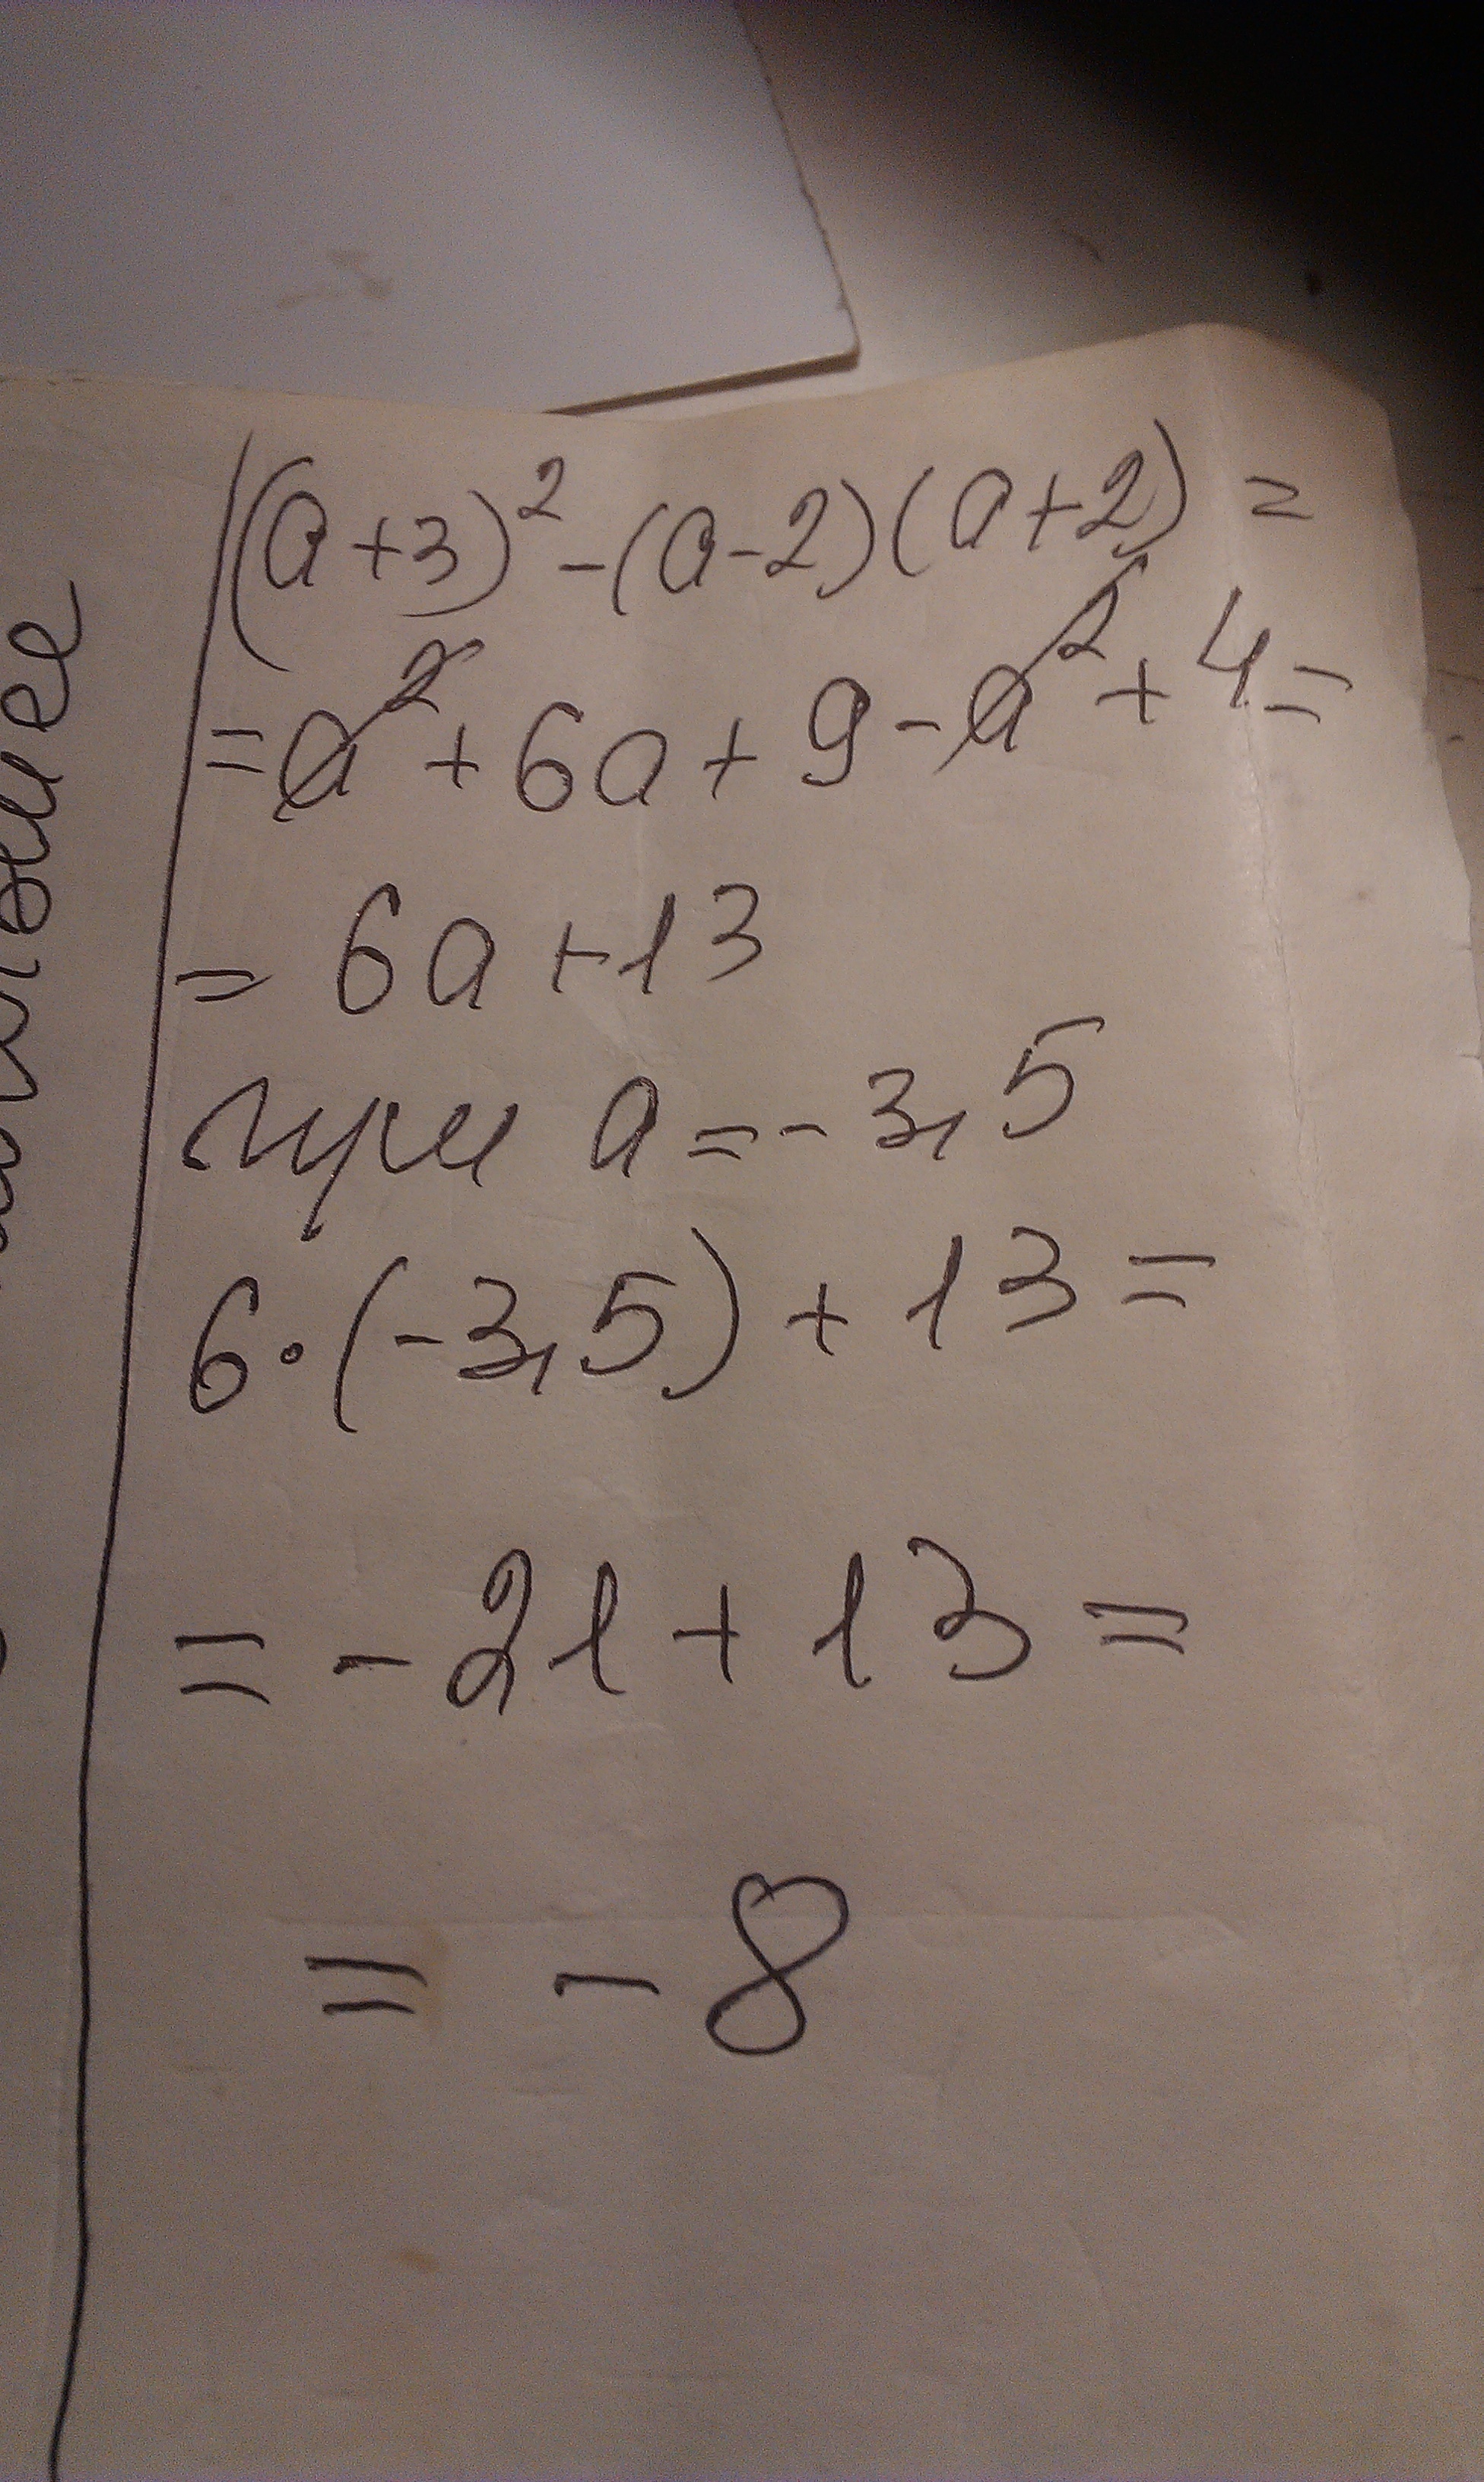 (a+3)² - (a-2)(a+2) =
= a² + 6a + 9 - a² + 4 =
= 6a + 13
при a = - 3,5
6 · (-3,5) + 13 =
= - 21 + 13 =
= - 8